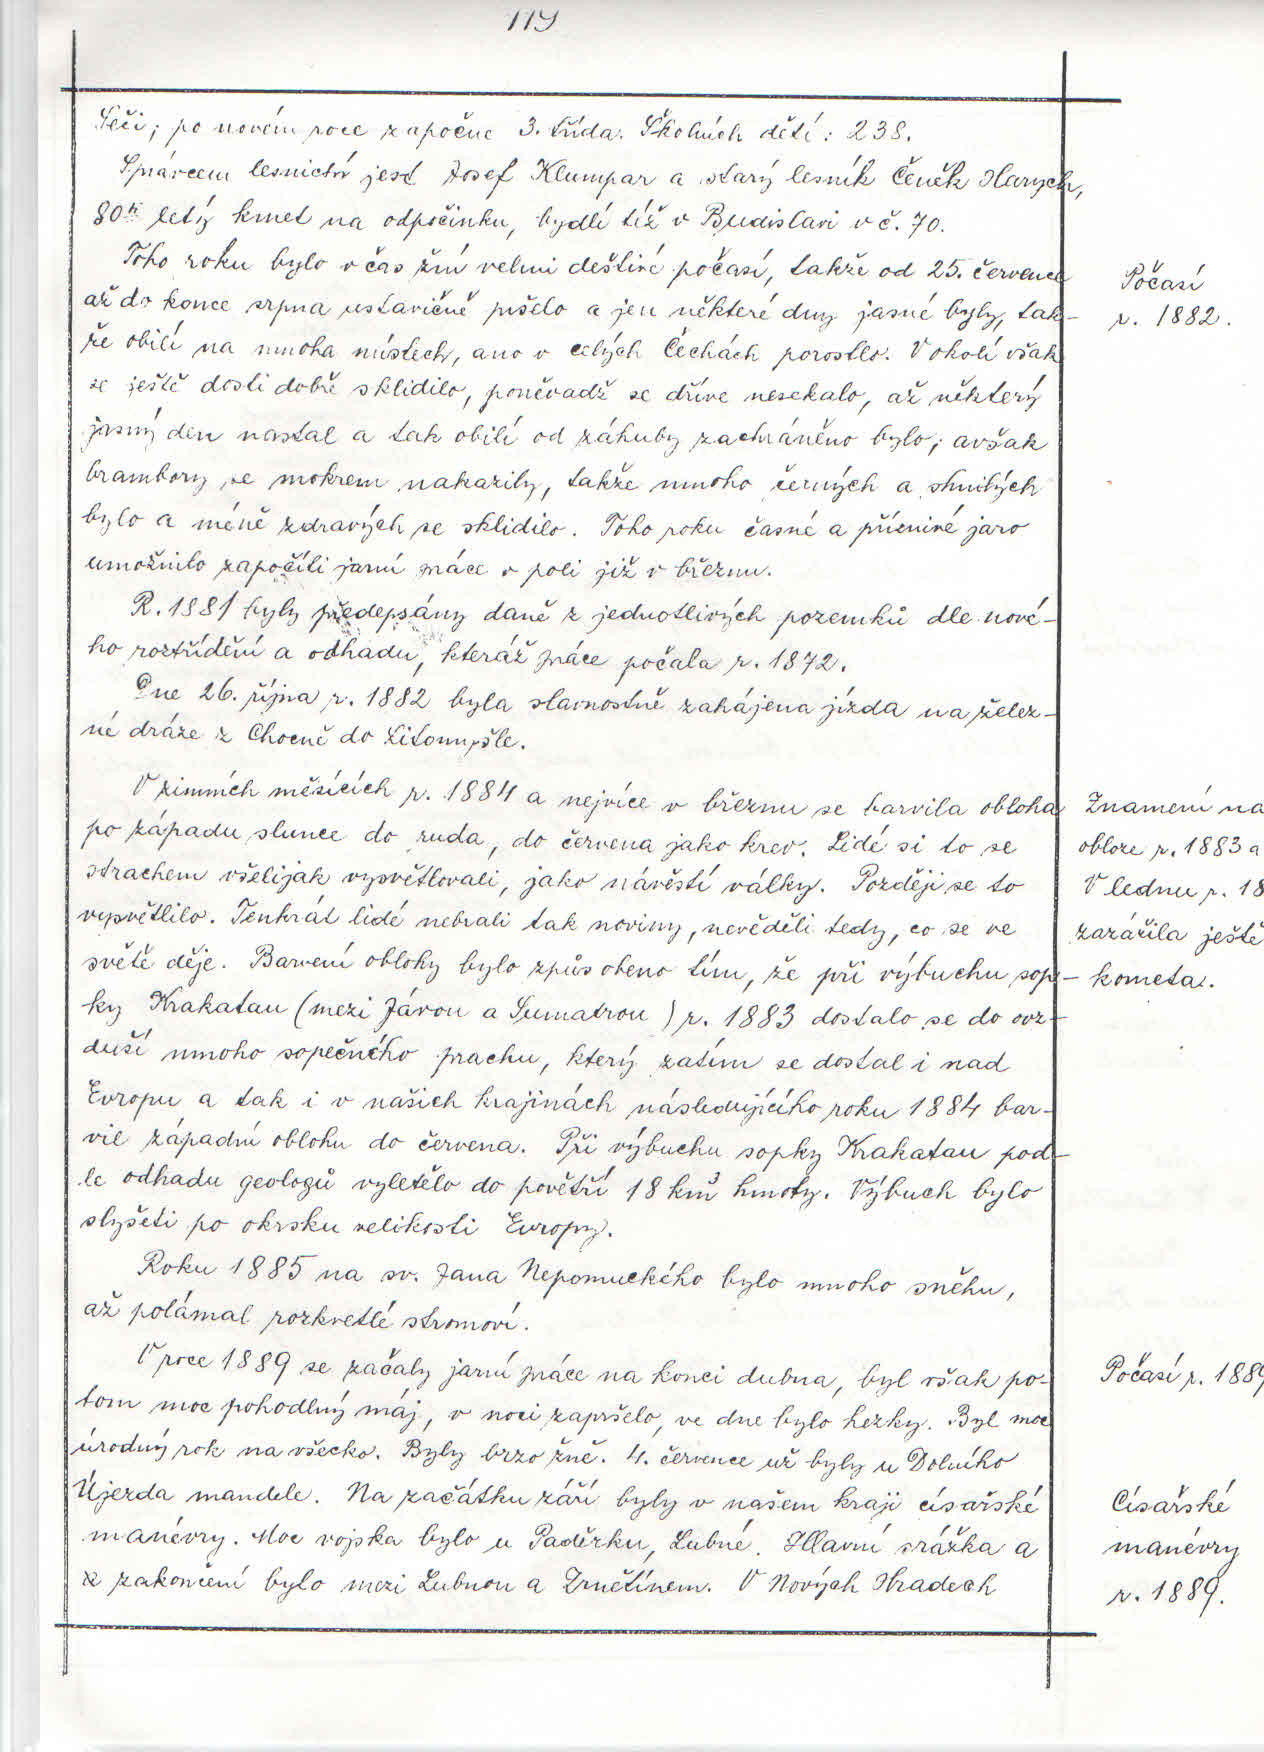 119
Seči; po novém roce započne 3. třída. Školních dětí: 238.
Správcem lesnictví jest Josef Klumpar a starý lesník Čeněk Harych,
80ti letý kmet na odpočinku, bydlí též v Budislavi v č. 70.
Toho roku bylo v čas žní velmi deštivé počasí, takže od 25. července
až do konce srpna ustavičně pršelo a jen některé dny jasné byly, tak-
že obilí na mnoha místech, ano v celých Čechách porostlo. V okolí však
se ještě dosti dobře sklidilo, poněvadž se dříve nesekalo, až některý
jasný den nastal a tak obilí od záhuby zachráněno bylo; avšak
brambory se mokrem nakazily, takže mnoho černých a shnilých
bylo a méně zdravých se sklidilo. Toho roku časné a příznivé jaro
umožnilo započíti jarní práce v poli již v březnu.
Počasí
r. 1882.
R. 1881 byly předepsány daně z jednotlivých pozemků dle nové-
ho roztřídění a odhadu, kteráž práce počala r. 1872.
Dne 26. října r. 1882 byla slavnostně zahájena jízda na želez-
né dráze z Chocně do Litomyšle.
V zimních měsících r. 1884 a nejvíce v březnu se barvila obloha
po západu slunce do ruda, do červena jako krev. Lidé si to se
strachem všelijak vysvětlovali, jako návěstí války. Později se to
vysvětlilo. Tenkrát lidé nebrali tak noviny, nevěděli tedy, co se ve
světě děje. Barvení oblohy bylo způsobeno tím, že při výbuchu sop-
ky Krakatau (mezi Jávou a Sumatrou) r. 1883 dostalo se do ovz-
duší mnoho sopečného prachu, který zatím se dostal i nad
Evropu a tak i v našich krajinách následujícího roku 1884 bar-
vil západní oblohu do červena. Při výbuchu sopky Krakatau pod-
le odhadu geologů vyletělo do povětří 18 km³ hmoty. Výbuch bylo
slyšeti po okrsku velikosti Evropy.
Znamení na
obloze r. 1883 a
V lednu r. 18
zazářila ještě
kometa.
Roku 1885 na sv. Jana Nepomuckého bylo mnoho sněhu,
až polámal rozkvetlé stromoví.
V roce 1889 se začaly jarní práce na konci dubna, byl však po-
tom moc pohodlný máj, v noci zapršelo, ve dne bylo hezky. Byl moc
úrodný rok na všecko. Byly brzo žně. 4. července už byly u Dolního
Újezda mandele. Na začátku září byly v našem kraji císařské
manévry. Moc vojska bylo u Paděrku, Lubné. Hlavní srážka a
zakončení bylo mezi Lubnou a Zrnětínem. V Nových Hradech
Počasí r. 1889
Císařské
manévry
r. 1889.